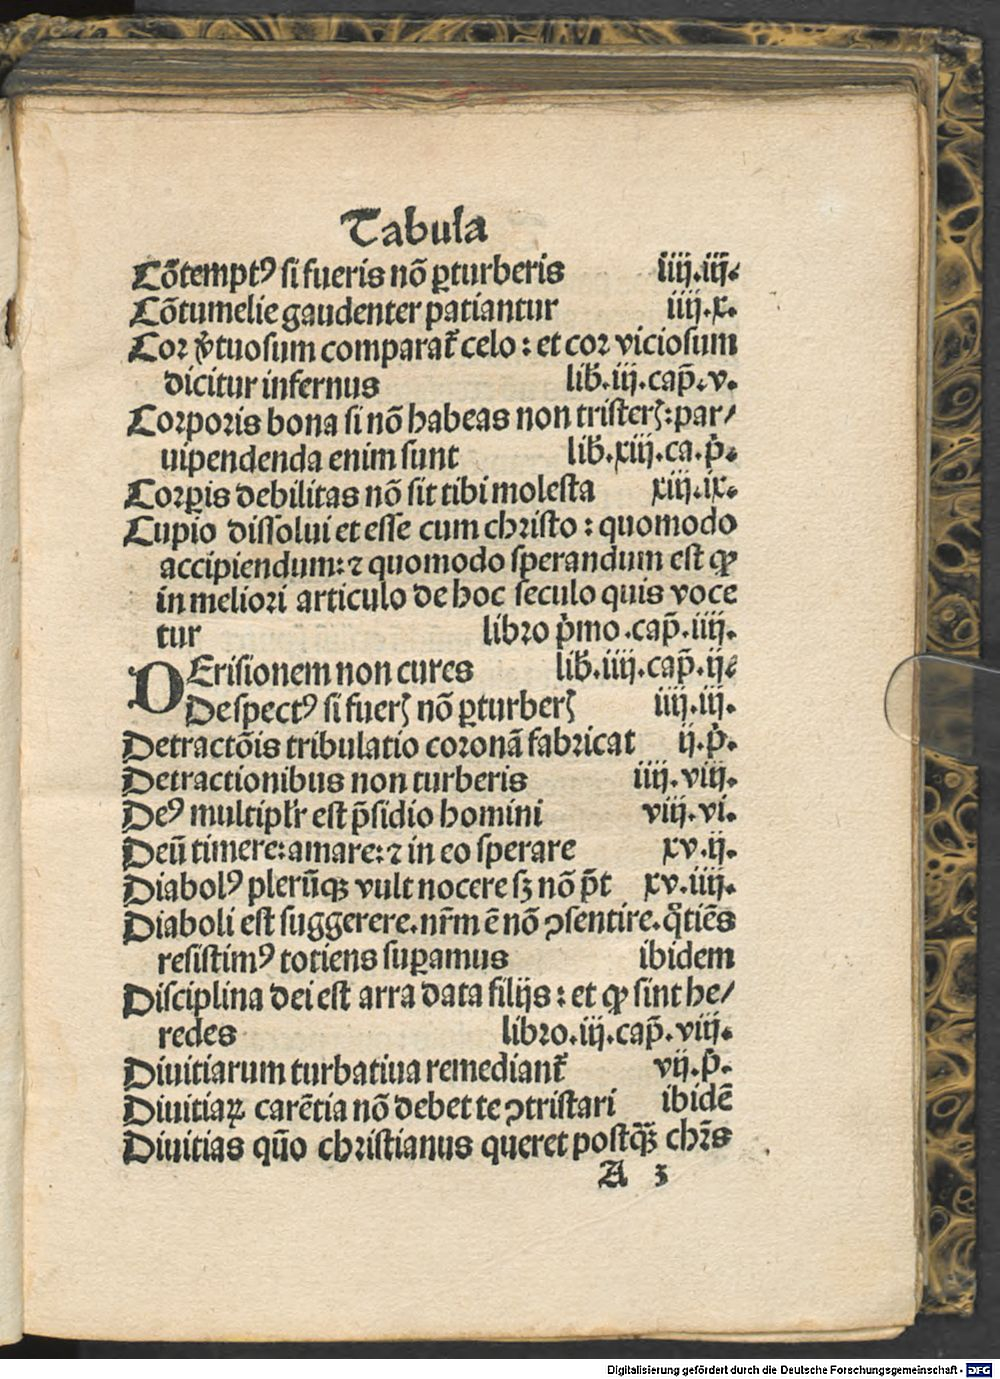 Tabula
Cōtemptꝰ si fueris nō ꝑturberis iiij.iij.
Cōtumelie gaudenter patiantur iiij.x.
Cor v̓tuosum comparat̄ celo : et cor viciosum
dicitur infernus lib̓.iij.cap̄.v.
Corporis bona si nō habeas non tristerꝭ:par/
uipendenda enim sunt lib̓.xiij.ca.p̓.
Corꝑis debilitas nō sit tibi molesta xiij.ix.
Cupio dissolui et esse cum christo : quomodo
accipiendum:⁊ quomodo sperandum est ꝙ
in meliori articulo de hoc seculo quis voce
tur libro p̓mo.cap̄.iiij.
DErisionem non cures lib̓.iiij.cap̄.ij.
Despectꝰ si fuerꝭ nō ꝑturberꝭ iiij.iij.
Detractōis tribulatio coronā fabricat ij.p̓.
Detractionibus non turberis iiij.viij.
Deꝰ multipl'r est p̄sidio homini viij.vi.
Deū timere:amare:⁊ in eo sperare xv.ij.
Diabolꝰ plerūqꝫ vult nocere sꝫ nō p̄t xv.iiij.
Diaboli est suggerere.nr̄m ē nō ꝯsentire.q̓tiēs
resistimꝰ totiens suꝑamus ibidem
Disciplina dei est arra data filijs : et ꝙ sint he/
redes libro.iij.cap̄.viij.
Diuitiarum turbatiua remediant̄ vij.p̓.
Diuitiaꝝ carētia nō debet te ꝯtristari ibidē
Diuitias quō christianus queret postq̄ꝫ chr̄s
A 3
Digitalisierung gefördert durch die Deutsche Forschungsgemeinschaft - DFG